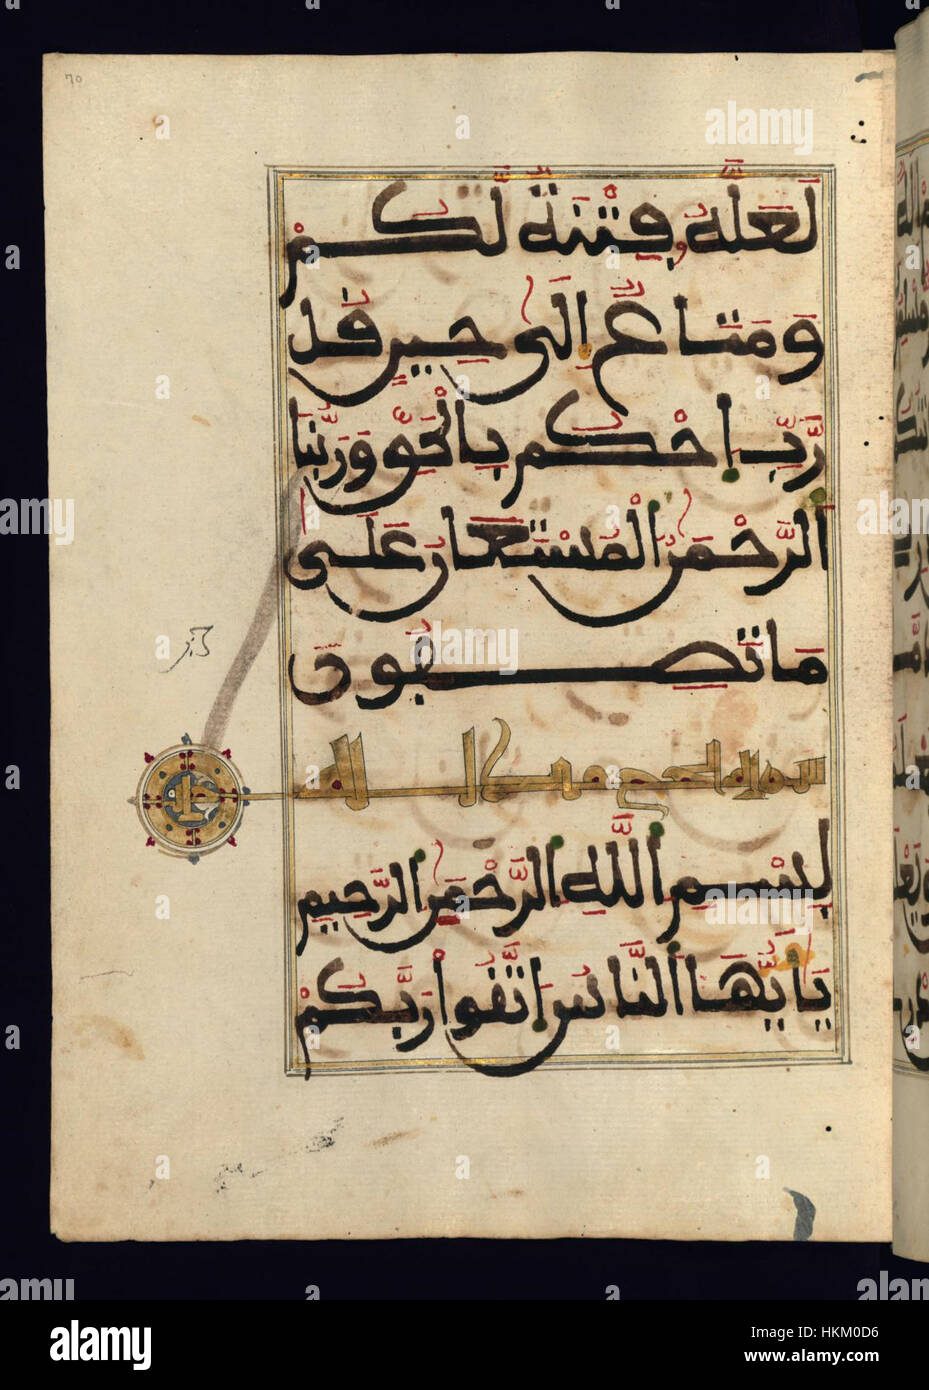 70
لَعَلَّهُ فِتْنَةٌ لَّكُمْ
وَمَتَاعٌ إِلَىٰ حِينٍ قُل
رَّبِّ احْكُم بِالْحَقِّ وَرَبُّنَا
الرَّحْمَٰنُ الْمُسْتَعَانُ عَلَىٰ
مَا تَصِفُونَ
سورة الحج
بِسْمِ اللَّهِ الرَّحْمَٰنِ الرَّحِيمِ
يَا أَيُّهَا النَّاسُ اتَّقُوا رَبَّكُمْ
alamy
Image ID: HKM0D6
www.alamy.com